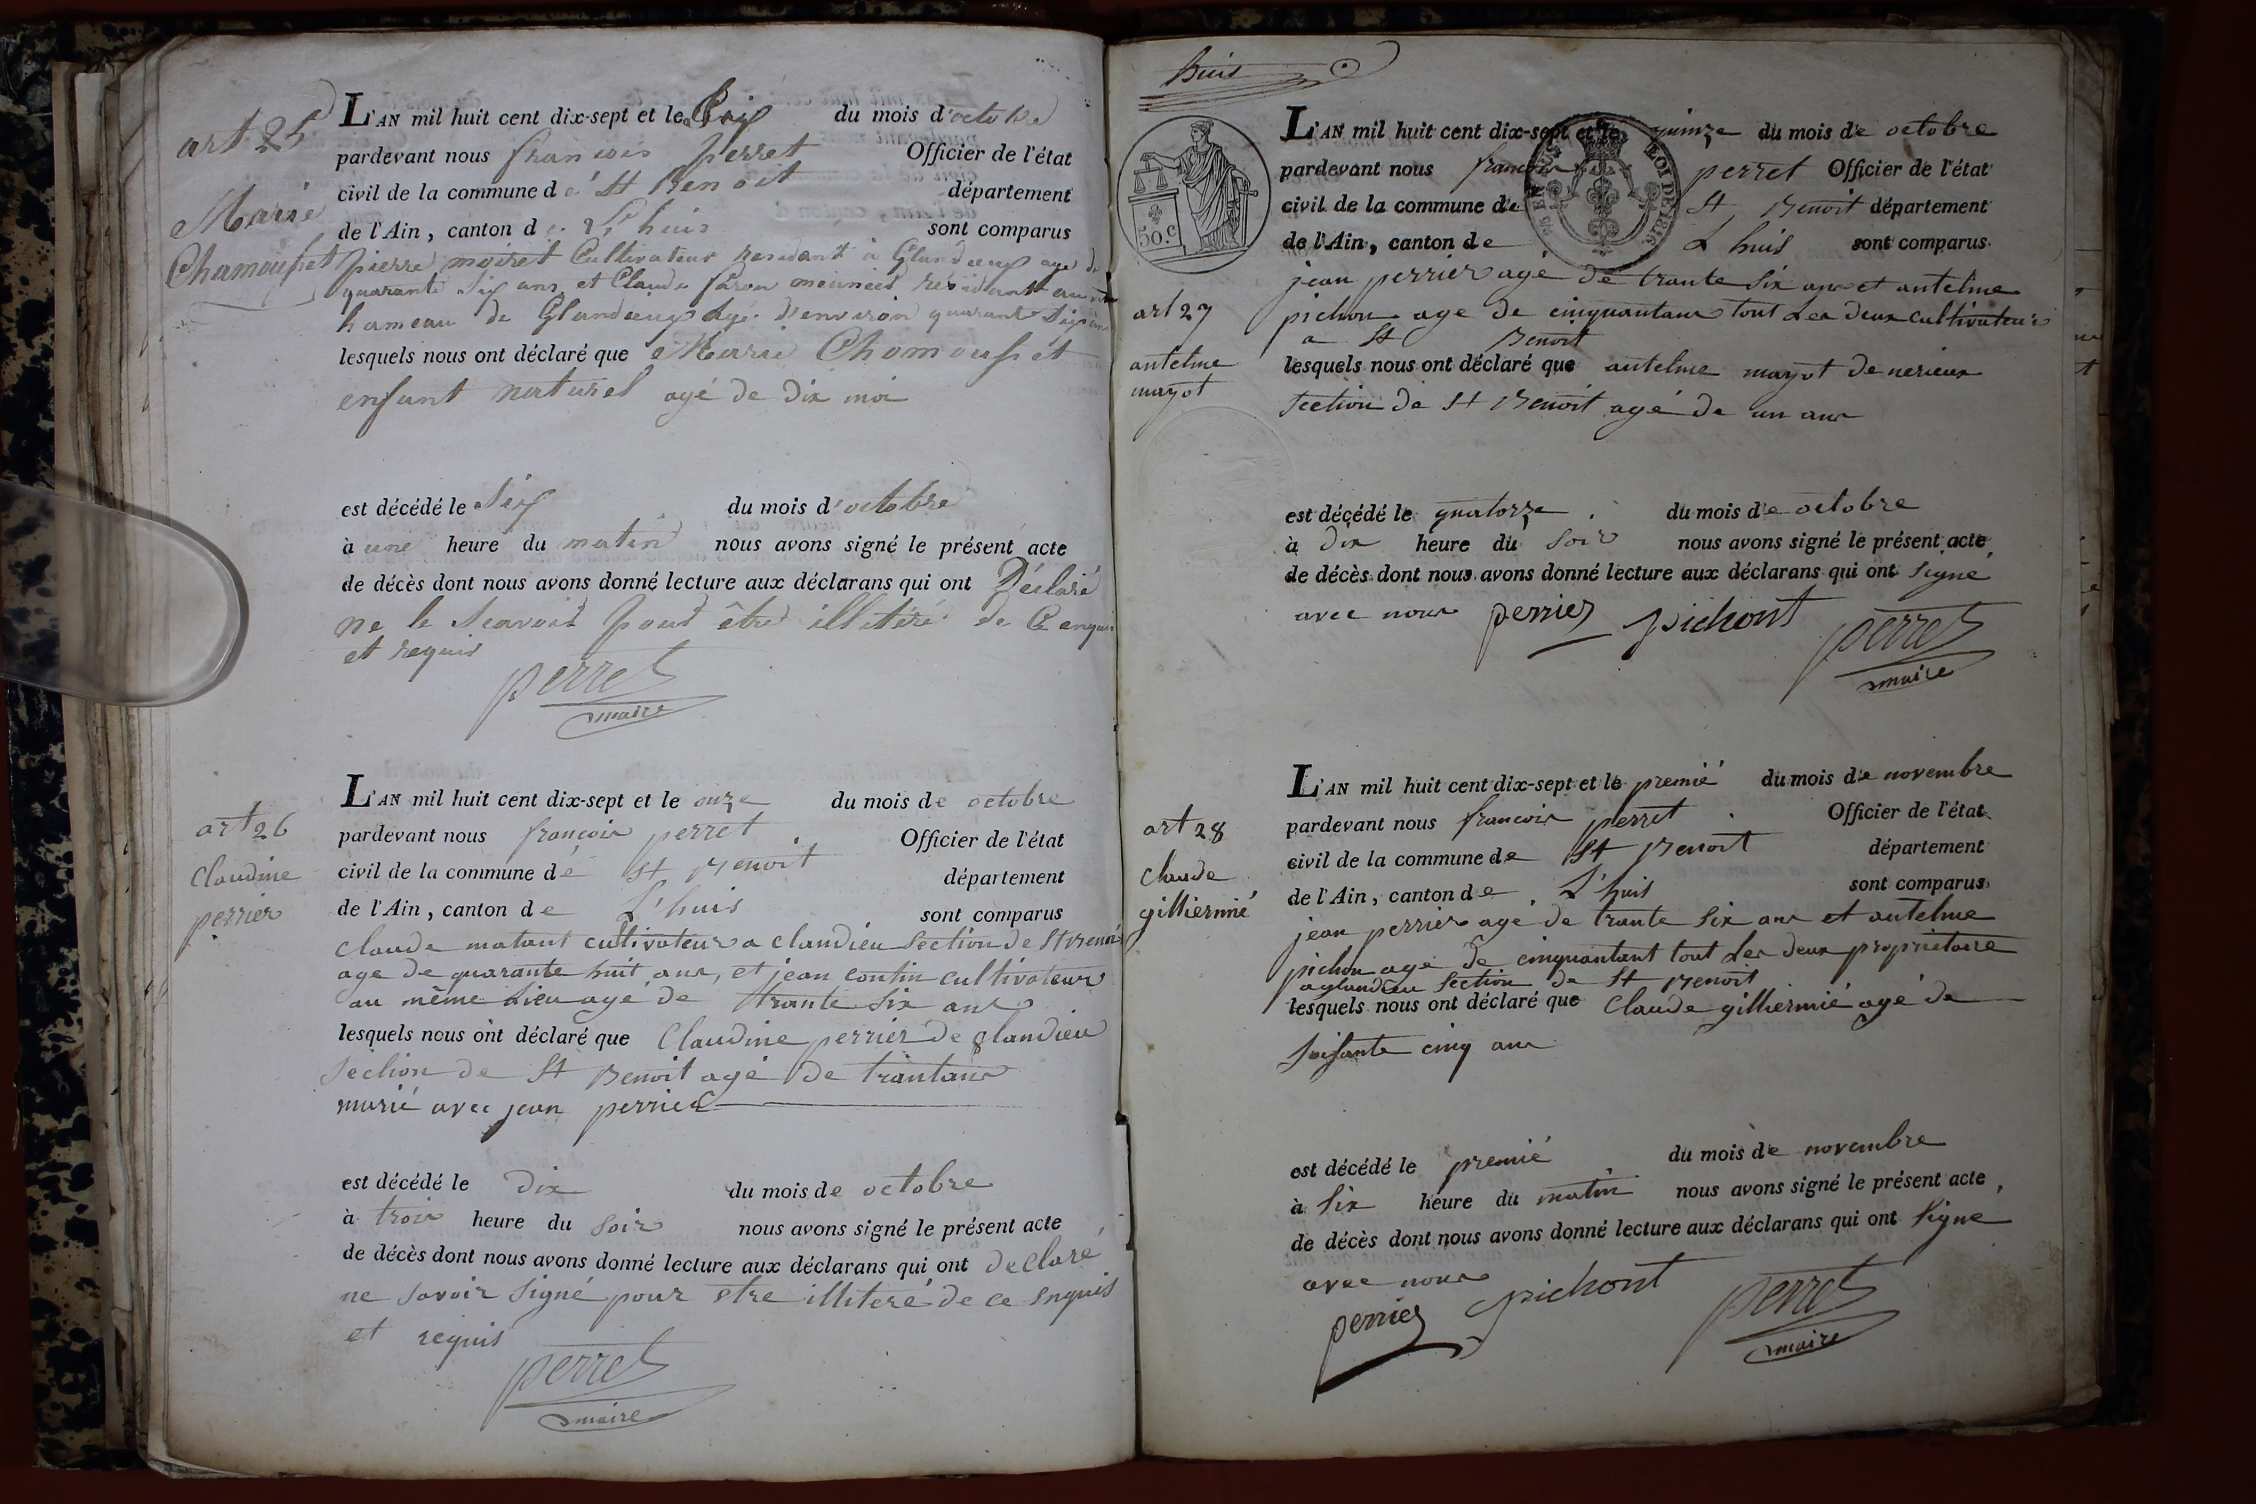 art 25
Marie
Chamousset
L'AN mil huit cent dix-sept et le Six du mois d'octobre
pardevant nous francois perret Officier de l'état
civil de la commune de St Benoit département
de l'Ain, canton de L'huis sont comparus
pierre moiret Cultivateur residant à Glandieu age de
quarante Six ans et Claude résidant au
hameau de Glandieu age d'environ quarante Six ans
lesquels nous ont déclaré que Marie Chomousset
enfant naturel agé de dix moi
est décédé le Six du mois d'octobre
à une heure du matin nous avons signé le présent acte
de décès dont nous avons donné lecture aux déclarans qui ont Déclaré
ne le Scavoir pour être illitéré de Ce enquis
et requis
perret
maire
art 26
Claudine
perrier
L'AN mil huit cent dix-sept et le onze du mois de octobre
pardevant nous françois perret Officier de l'état
civil de la commune de St Benoit département
de l'Ain, canton de L'huis sont comparus
claude matant cultivateur a clandieu Section de St benoi
age de quarante huit ans, et jean contin cultivateur
au même Lieu agé de trante Six ans
lesquels nous ont déclaré que Claudine perrier de glandieu
Section de St Benoit agé de trantans
marié avec jean perrier
est décédé le dix du mois de octobre
à trois heure du soir nous avons signé le présent acte
de décès dont nous avons donné lecture aux déclarans qui ont declaré
ne savoir signé pour etre illiteré de ce enquis
et requis
perret
maire
huis
50.c
art 27
antelme
mayot
L'AN mil huit cent dix-sept et le quinze du mois de octobre
pardevant nous francois perret Officier de l'état
civil de la commune de St Benoit département
de l'Ain, canton de L'huis sont comparus
jean perrier agé de trante six ans et antelme
pichon age de cinquantans tout Les deux cultivateur
a St Benoit
lesquels nous ont déclaré que antelme mayot de nerieux
section de St Benoit agé de un ans
est décédé le quatorze du mois de octobre
à dix heure du soir nous avons signé le présent acte
de décès dont nous avons donné lecture aux déclarans qui ont signe
avec nous perrier pichont perret
maire
art 28
claude
gilliermié
L'AN mil huit cent dix-sept et le premié du mois de novembre
pardevant nous francois perret Officier de l'état
civil de la commune de St Benoit département
de l'Ain, canton de L'huis sont comparus
jean perrier age de trante six ans et antelme
pichon agé de cinquantant tout Les deux proprietaire
aglandieu Section de St Benoit
lesquels nous ont déclaré que Claude gilliermié agé de
soisante cinq ans
est décédé le premié du mois de novembre
à Six heure du matin nous avons signé le présent acte
de décès dont nous avons donné lecture aux déclarans qui ont signe
avec nous pichont perret
perrier maire